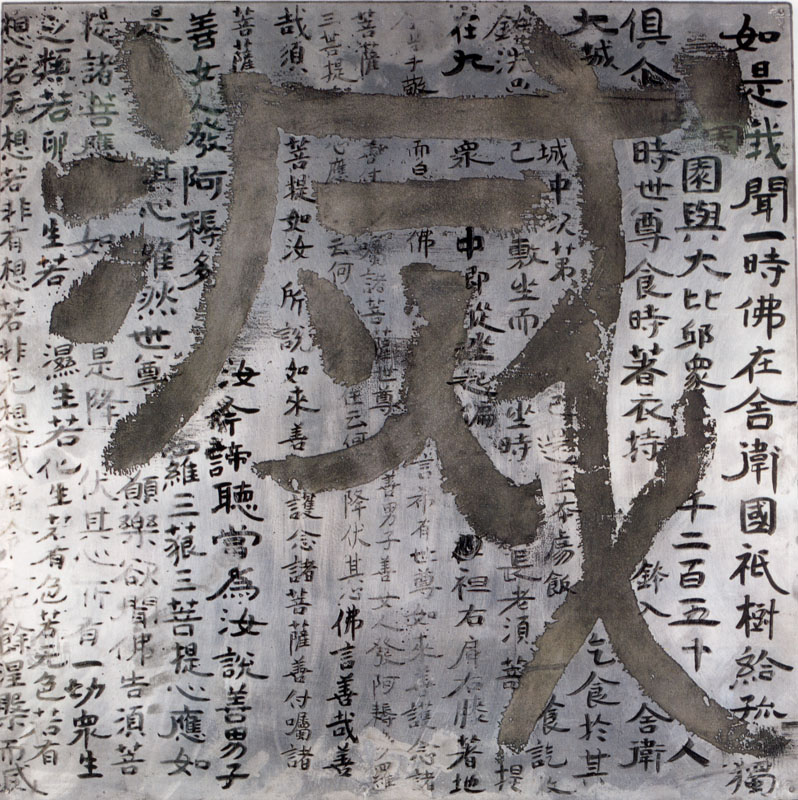 滅
如是我聞一時佛在舍衛國祇樹給孤獨
園與大比邱衆千二百五十人
俱尒時世尊食時著衣持鉢入舍衛
大城乞食於其
城中次苐已還至本處飯食訖收
鉢洗已敷坐而坐時長老須菩提
在大衆中即從坐起徧袒右肩右膝著地
敬而白佛言希有世尊如來善護念諸
菩薩善付囑諸菩薩世尊善男子善女人發阿耨多羅
三菩提心應云何住云何降伏其心佛言善哉善
哉須菩提如汝所說如來善護念諸菩薩善付囑諸
菩薩汝今諦聽當為汝說善男子
善女人發阿耨多羅三藐三菩提心應如
是其心唯然世尊願樂欲聞佛告須菩
提諸菩應如是降伏其心所有一切衆生
之類若卵生若濕生若化生若有色若无色若有
想若无想若非有想若非无想我皆令入无餘涅槃而滅